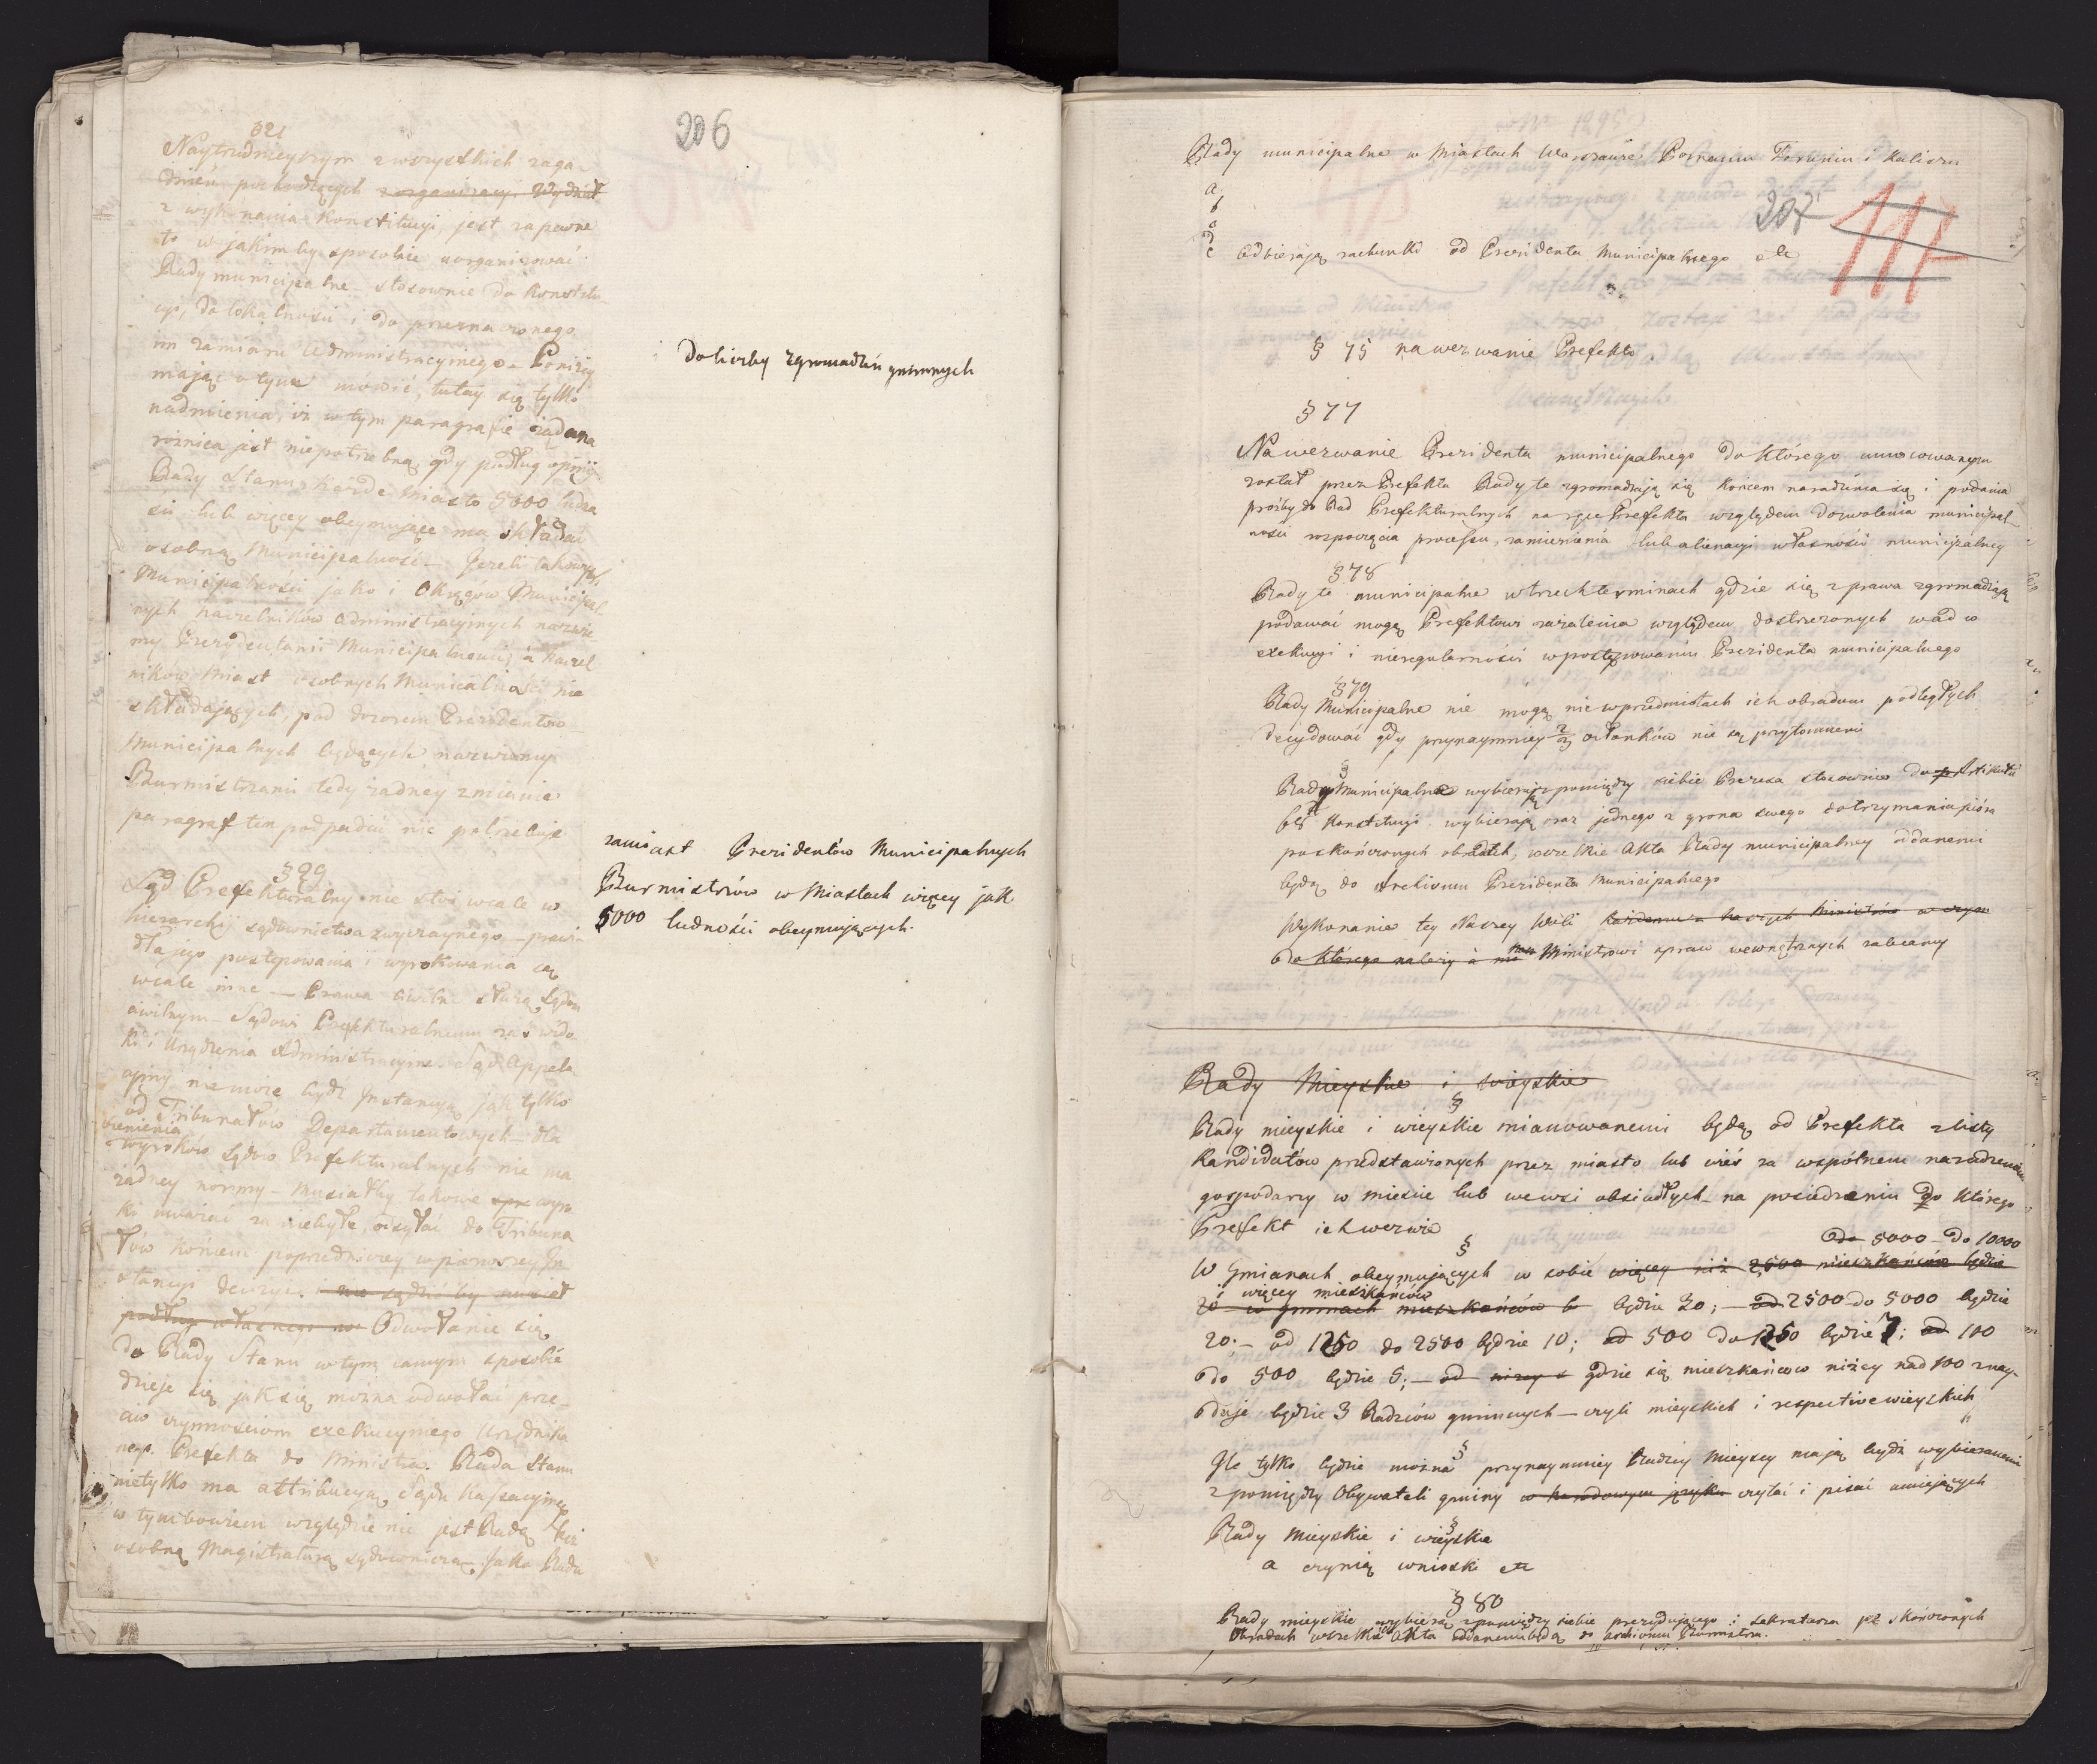 206
§21
Naytrudnieyszym z wszystkich zaga-
dnień pochodzących z organizacyi Wydział
z wykonania Konstitucyi, jest zapewne
to w jakimby sposobie uorganizować
Rady municipalne stosownie do Konstitu-
cyi, do lokalności i do przeznaczonego
im zamiaru administracyinego. Poniżey
mając o tym mówić, tutay się tylko
nadmienia, iż w tym paragrafie żadna
rożnica jest niepotrzebną, gdy podług opinij
Rady Stanu każde miasto 5000 ludno
ści lub więcey obeymujące ma składać
osobną Municipalność. Jeżeli takowych
Municipalności jako i Okręgów Municipal
nych naczelników administracyinych nazwie
my Prezydentami Municipalnemi, a Naczel
ników Miast osobnych Municalności nie
składających, pod dozorem Prezidentów
Municipalnych będących, nazwiemy
Burmistrzami tedy żadney zmianie
paragraf ten podpadać nie potrzebuje
§ 29
Sąd Prefekturalny nie stoi wcale w
hierarchij sądownictwa zwyczaynego prawa
dla jego postępowania i wyrokowania są
wcale inne — Prawa cywilne służą Sądom
cywilnym — Sądowi Prefekturalnemu zaś
ki i Urządzenia administracyine. Sąd Appela
cyiny nie może bydź Instancyą jak tylko
od Tribunałów Departamentowych — dla
wyroków Sądów Prefekturalnych nie ma
żadney normy — Musiałby takowe wyro
ki uważać za niebyłe, odsyłać do Tribuna
łów końcem poprzedniczey w pierwszey In
stancyi decizyi. i nie sądzić by musiał
podług własnego Odwołanie się
do Rady Stanu w tym samym sposobie
dzieje się jak się można odwołać prze-
ciw czynnościom exekucyinego Urzędnika
nap. Prefekta do Ministra. Rada Stanu
nietylko ma attribucyą Sądu Kassacyiney
w tym bowiem względzie nie jest Radą lecz
osobną Magistraturą sądowniczą. Jako Rada
i do liczby zgromadzeń gminnych
zamiast Prezidentów Municipalnych
Burmistrzów w Miastach więcey jak
5000 ludności obeymujących.
Rady municipalne w Miastach Warszawie Poznaniu Toruniu i Kaliszu
207
117
a
b
c
d
e odbierają rachunki od Prezidenta Municipalnego etc
§ 75 na wezwanie Prefekta
§ 77
Na wezwanie Prezidenta municipalnego do którego umocowanym
został przez Prefekta Rady te zgromadzają się końcem naradzenia się i podania
prośby do Rad Prefekturalnych na ręce Prefekta względem dozwolenia municipal-
ności rozpoczęcia processu, zamienienia lub alienacyi własności municipalney
§ 78
Rady te municipalne w trzech terminach gdzie się z prawa zgromadzają
podawać mogą Prefektowi zażalenia względem dostrzeżonych wad w
exekucyi i nieregularności w postępowaniu Prezidenta municipalnego
§ 79
Rady Municipalne nie mogą nic w przedmiotach ich obradom podległych
decydować gdy przynaymniey 2/3 członków nie są przytomnemi
§
Rady Municipalne wybierają z pomiędzy siebie Prezesa stosownie do Artikułu
68 Konstitucyi wybierają oraz jednego z grona swego do trzymania pióra
po skończonych obradach, wszelkie akta Rady municipalney oddanemi
będą do Archivum Prezidenta Municipalnego
Wykonanie tey Naszey Woli każdemu z naszych Ministrów w czym
do którego należy a Ministrowi spraw wewnętrznych zalecamy
Rady Mieyskie i wieyskie
§
Rady mieyskie i wieyskie mianowanemi będą od Prefekta z listy
Kandidatów przedstawionych przez miasto lub wieś za wspólnem naradzeniem
gospodarzy w mieście lub we wsi obsiadłych na posiedzeniu do którego
Prefekt ich wezwie
§
od 5000 — do 10000
W Gminach obeymujących w sobie więcey niż 2500 mieszkańców będzie
i więcey mieszkańców
20 w gminach mieszkańców b będzie 30; — od 2500 do 5000 będzie
20; — od 1250 do 2500 będzie 10; od 500 do 1250 będzie 7; od 100
do 500 będzie 5; — od niżey gdzie się mieszkańców niżey nad 100 znay-
duje będzie 3 Radzców gminnych — czyli mieyskich i respective wieyskich
§
Ile tylko będzie można przynaymniey Radzcy Mieyscy mają bydź wybieranemi
z pomiędzy Obywateli gminy w narodowym języku czytać i pisać umiejących
§
Rady Mieyskie i wieyskie
a czynią wnioski etc
§ 80
Rady mieyskie wybierą z pomiędzy siebie prezydującego i sekretarza po skończonych
Obradach wszelkie akta oddanemi będą do archivum Burmistrza.